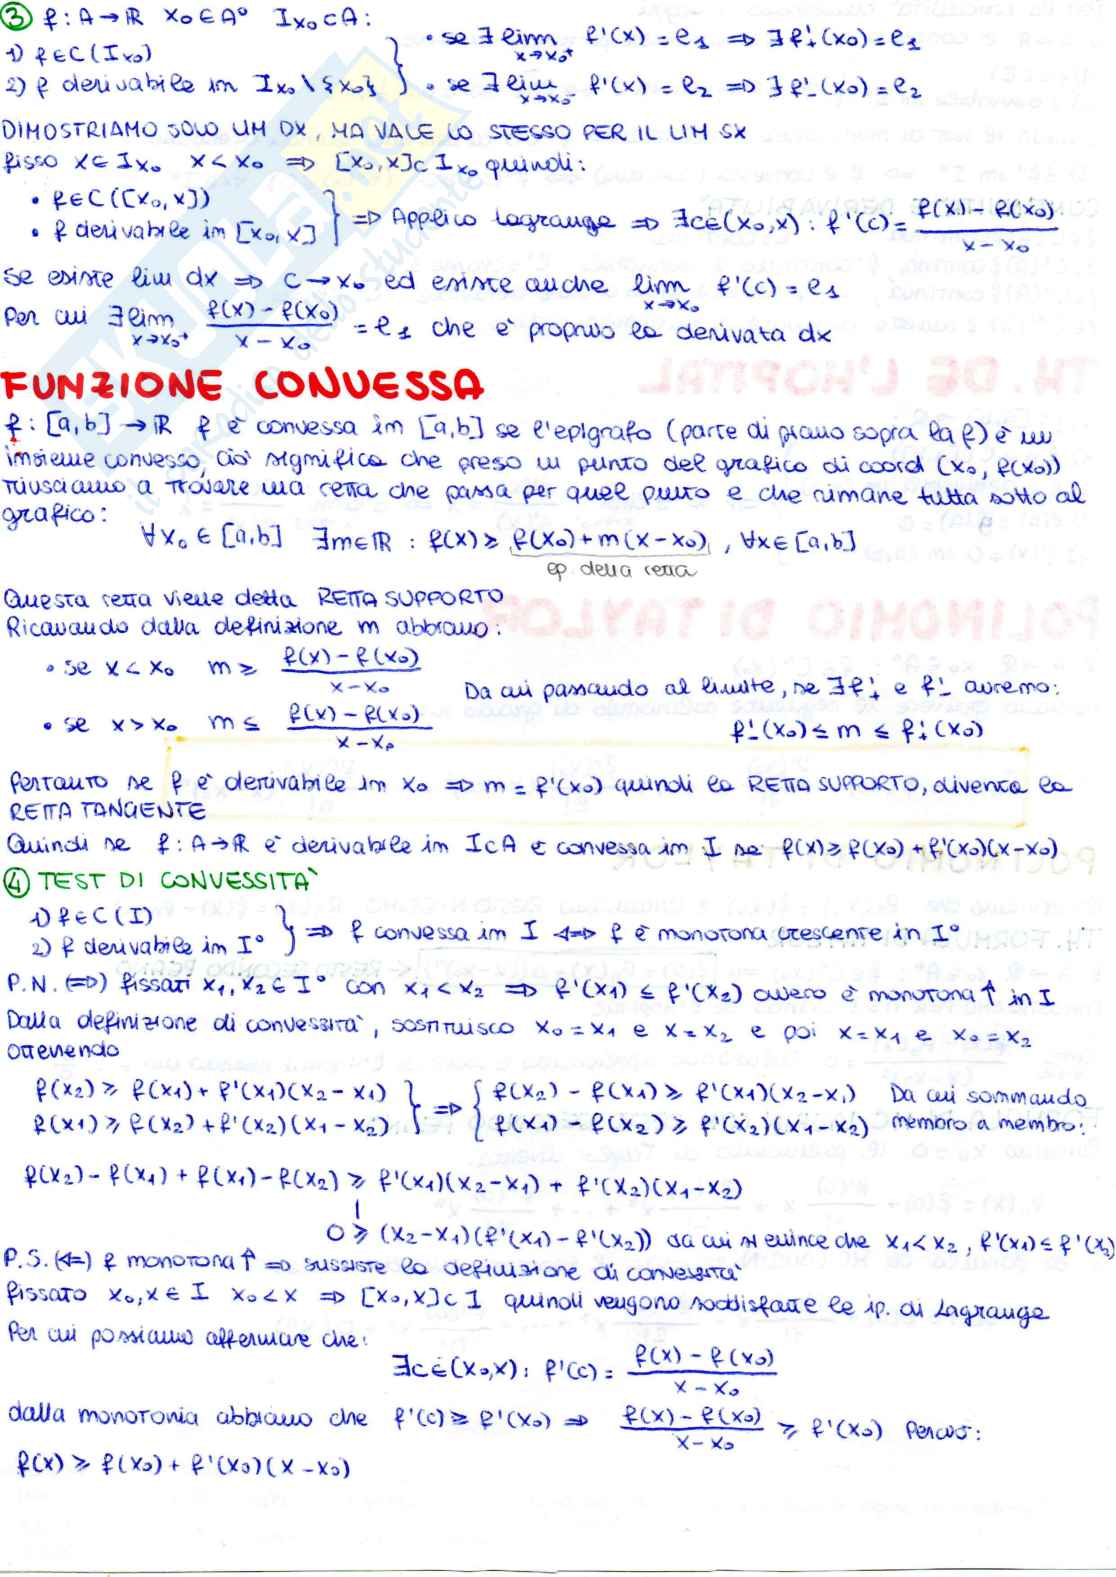 ③ f: A→ℝ x₀∈A° I_x₀⊂A:
1) f∈C(I_x₀)
2) f derivabile in I_x₀\{x₀}
• se ∃ lim x→x₀⁺ f'(x) = l₁ ⇒ ∃ f'₊(x₀) = l₁
• se ∃ lim x→x₀⁻ f'(x) = l₂ ⇒ ∃ f'₋(x₀) = l₂
DIMOSTRIAMO SOLO LIM DX, MA VALE LO STESSO PER IL LIM SX
fisso x∈I_x₀ x<x₀ ⇒ [x₀,x]⊂I_x₀ quindi:
• f∈C([x₀,x])
• f derivabile in [x₀,x]
⇒ Applico Lagrange ⇒ ∃c∈(x₀,x): f'(c) = (f(x) - f(x₀))/(x - x₀)
Se esiste lim dx ⇒ c→x₀ ed esiste anche lim x→x₀ f'(c) = l₁
Per cui ∃ lim x→x₀⁺ (f(x) - f(x₀))/(x - x₀) = l₁ che è proprio la derivata dx
FUNZIONE CONVESSA
f: [a,b]→ℝ f è convessa in [a,b] se l'epigrafo (parte di piano sopra la f) è un
insieme convesso, ciò significa che preso un punto del grafico di coord (x₀, f(x₀))
riusciamo a trovare una retta che passa per quel punto e che rimane tutta sotto al
grafico:
∀x₀∈[a,b] ∃m∈ℝ : f(x) ≥ f(x₀)+m(x-x₀), ∀x∈[a,b]
eq. della retta
Questa retta viene detta RETTA SUPPORTO
Ricavando dalla definizione m abbiamo:
• se x<x₀ m ≥ (f(x) - f(x₀))/(x - x₀)
• se x>x₀ m ≤ (f(x) - f(x₀))/(x - x₀)
Da cui passando al limite, se ∃f'₊ e f'₋ avremo:
f'₋(x₀) ≤ m ≤ f'₊(x₀)
Pertanto se f è derivabile in x₀ ⇒ m = f'(x₀) quindi la RETTA SUPPORTO, diventa la
RETTA TANGENTE
Quindi se f: A→ℝ è derivabile in I⊂A è convessa in I se f(x) ≥ f(x₀) + f'(x₀)(x-x₀)
④ TEST DI CONVESSITÀ
1) f∈C(I)
2) f derivabile in I°
⇒ f convessa in I ⇔ f è monotona crescente in I°
P.N. (⇒) fissati x₁, x₂∈I° con x₁<x₂ ⇒ f'(x₁) ≤ f'(x₂) ovvero è monotona↑ in I
Dalla definizione di convessità, sostituisco x₀=x₁ e x=x₂ e poi x=x₁ e x₀=x₂
ottenendo
f(x₂) ≥ f(x₁) + f'(x₁)(x₂ - x₁)
f(x₁) ≥ f(x₂) + f'(x₂)(x₁ - x₂)
⇒
f(x₂) - f(x₁) ≥ f'(x₁)(x₂-x₁)
f(x₁) - f(x₂) ≥ f'(x₂)(x₁-x₂)
Da cui sommando
membro a membro:
f(x₂) - f(x₁) + f(x₁) - f(x₂) ≥ f'(x₁)(x₂-x₁) + f'(x₂)(x₁-x₂)
0 ≥ (x₂-x₁)(f'(x₁) - f'(x₂)) da cui si evince che x₁<x₂, f'(x₁) ≤ f'(x₂)
P.S. (⇐) f monotona↑ ⇒ sussiste la definizione di convessità
fissato x₀,x∈I x₀<x ⇒ [x₀,x]⊂I quindi vengono soddisfatte le ip. di Lagrange
Per cui possiamo affermare che:
∃c∈(x₀,x): f'(c) = (f(x) - f(x₀))/(x - x₀)
dalla monotonia abbiamo che f'(c) ≥ f'(x₀) ⇒ (f(x) - f(x₀))/(x - x₀) ≥ f'(x₀) Perciò:
f(x) ≥ f(x₀) + f'(x₀)(x - x₀)